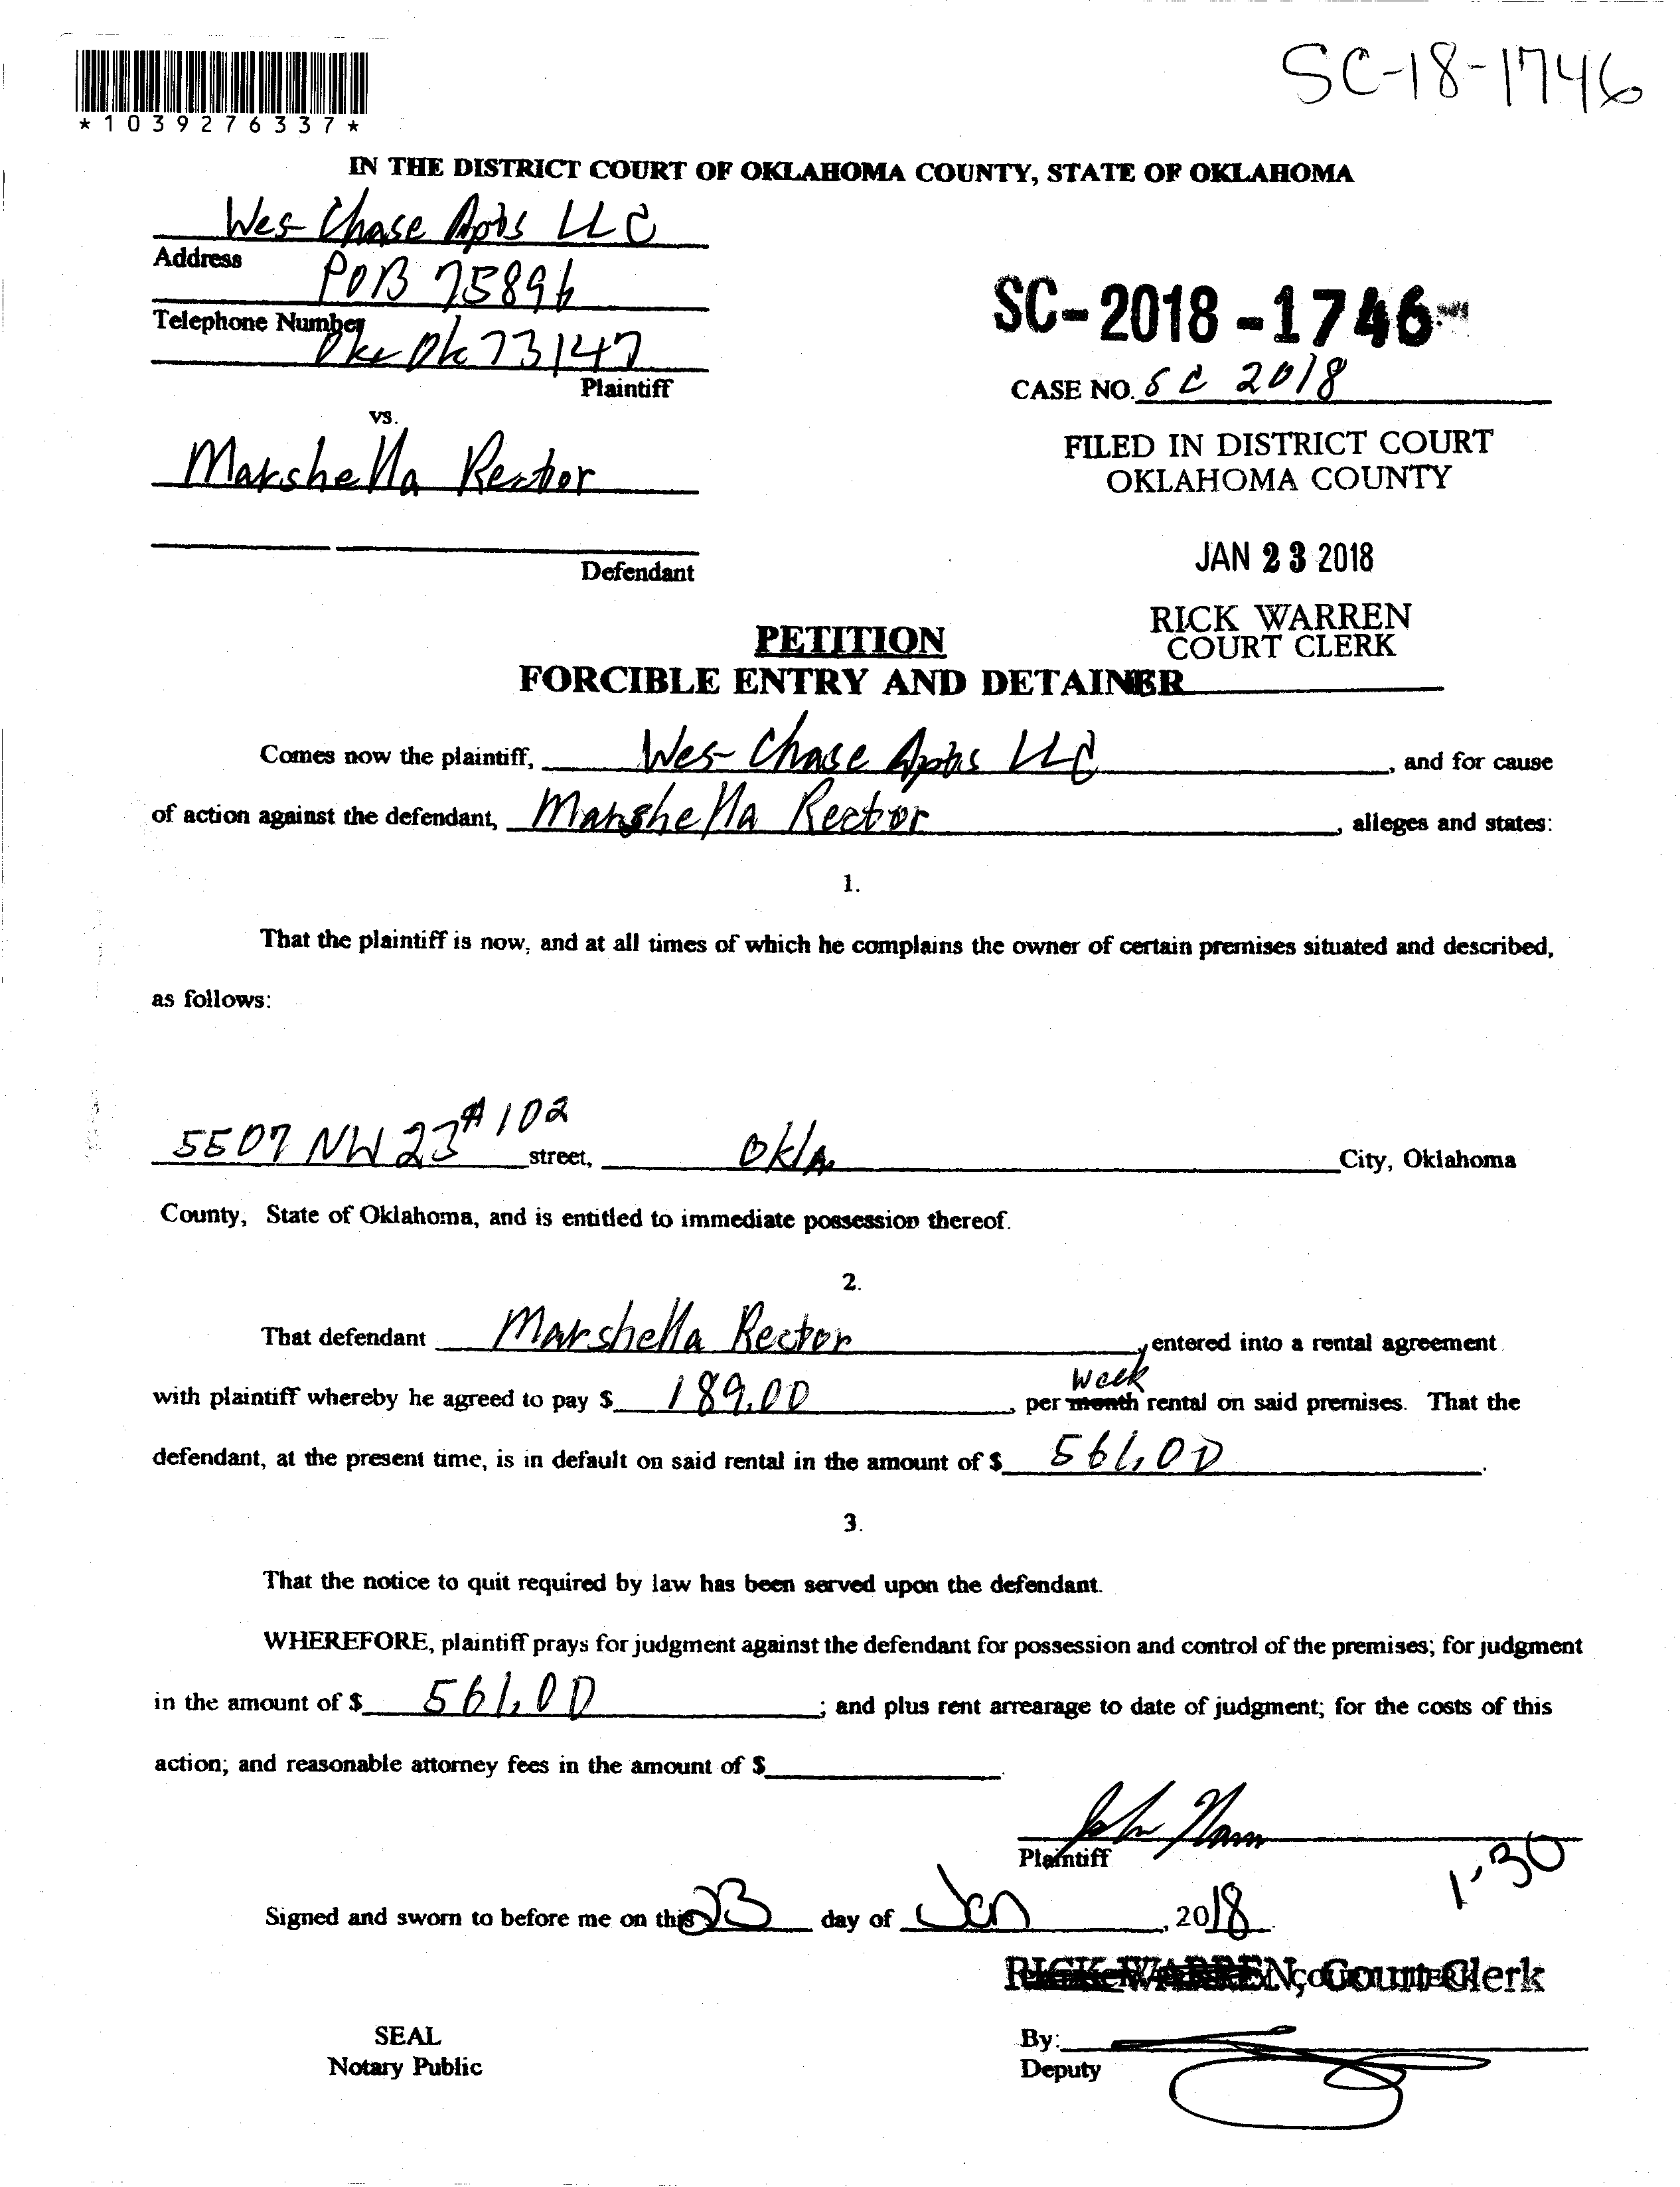 SC-18-1746
*1039276337*
IN THE DISTRICT COURT OF OKLAHOMA COUNTY, STATE OF OKLAHOMA
Wes-Chase Apts LLC
Address
POB 75896
Telephone Number
Okc Ok 73147
Plaintiff
SC-2018-1746
CASE NO. SC 2018
vs.
Marshella Rector
Defendant
FILED IN DISTRICT COURT
OKLAHOMA COUNTY
JAN 23 2018
RICK WARREN
COURT CLERK
PETITION
FORCIBLE ENTRY AND DETAINER
Comes now the plaintiff, Wes-Chase Apts LLC, and for cause
of action against the defendant, Marshella Rector, alleges and states:
1.
That the plaintiff is now, and at all times of which he complains the owner of certain premises situated and described,
as follows:
5507 NW 23 #102 street, Okla City, Oklahoma
County, State of Oklahoma, and is entitled to immediate possession thereof.
2.
That defendant Marshella Rector, entered into a rental agreement
with plaintiff whereby he agreed to pay $ 189.00, per month week rental on said premises. That the
defendant, at the present time, is in default on said rental in the amount of $ 561.00.
3.
That the notice to quit required by law has been served upon the defendant.
WHEREFORE, plaintiff prays for judgment against the defendant for possession and control of the premises; for judgment
in the amount of $ 561.00; and plus rent arrearage to date of judgment; for the costs of this
action; and reasonable attorney fees in the amount of $
Plaintiff
1:30
Signed and sworn to before me on this 23 day of Jan, 2018.
RICK WARREN, Court Clerk
SEAL
Notary Public
By:
Deputy